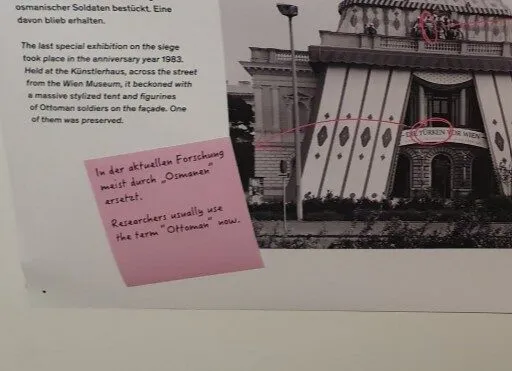 osmanischer Soldaten bestückt. Eine
davon blieb erhalten.
The last special exhibition on the siege
took place in the anniversary year 1983.
Held at the Künstlerhaus, across the street
from the Wien Museum, it beckoned with
a massive stylized tent and figurines
of Ottoman soldiers on the façade. One
of them was preserved.
DIE TÜRKEN VOR WIEN
In der aktuellen Forschung
meist durch „Osmanen“
ersetzt.
Researchers usually use
the term “Ottoman” now.